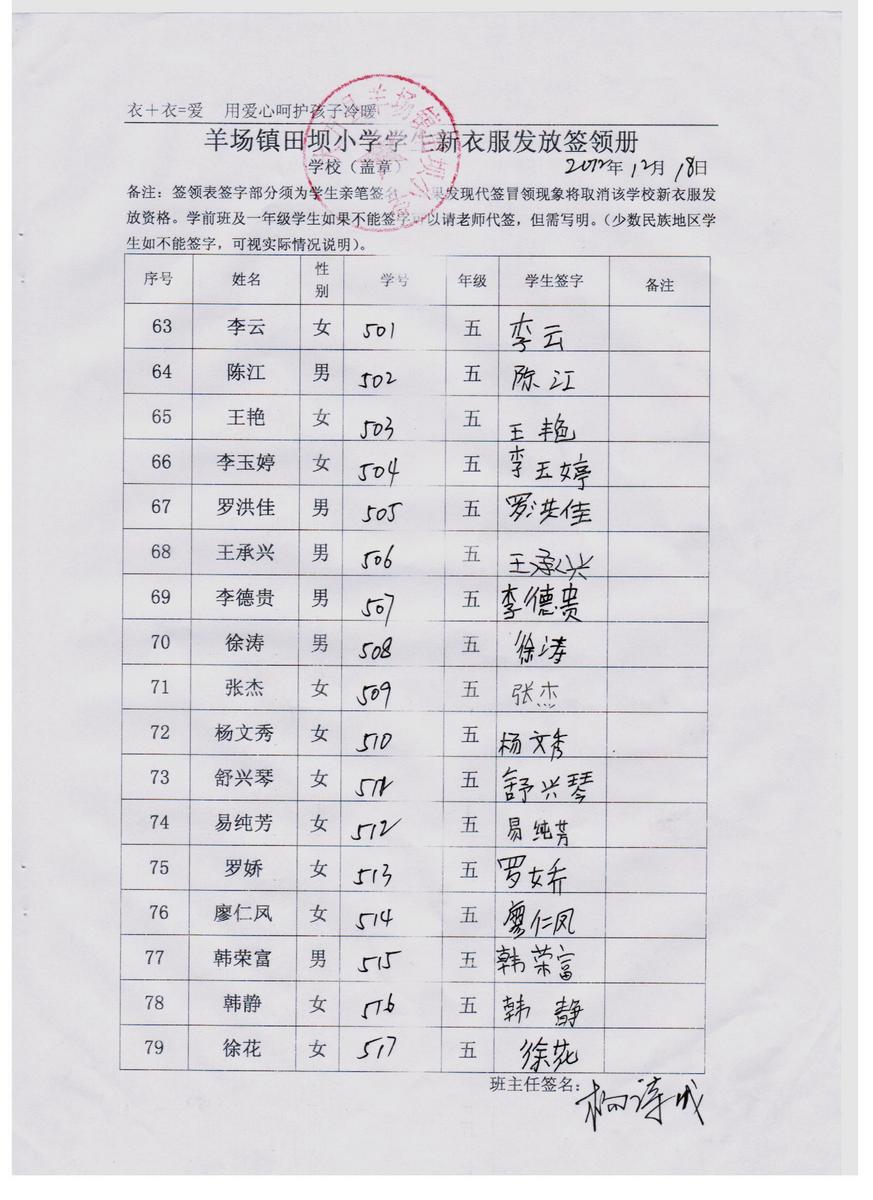 衣＋衣=爱　用爱心呵护孩子冷暖
羊场镇田坝小学学生新衣服发放签领册
学校（盖章） 2012年12月18日
备注：签领表签字部分须为学生亲笔签名 果发现代签冒领现象将取消该学校新衣服发
放资格。学前班及一年级学生如果不能签字可以请老师代签，但需写明。（少数民族地区学
生如不能签字，可视实际情况说明）。
序号 姓名 性别 学号 年级 学生签字 备注
63 李云 女 501 五 李云
64 陈江 男 502 五 陈江
65 王艳 女 503 五 王艳
66 李玉婷 女 504 五 李玉婷
67 罗洪佳 男 505 五 罗洪佳
68 王承兴 男 506 五 王承兴
69 李德贵 男 507 五 李德贵
70 徐涛 男 508 五 徐涛
71 张杰 女 509 五 张杰
72 杨文秀 女 510 五 杨文秀
73 舒兴琴 女 511 五 舒兴琴
74 易纯芳 女 512 五 易纯芳
75 罗娇 女 513 五 罗娇
76 廖仁凤 女 514 五 廖仁凤
77 韩荣富 男 515 五 韩荣富
78 韩静 女 516 五 韩静
79 徐花 女 517 五 徐花
班主任签名：